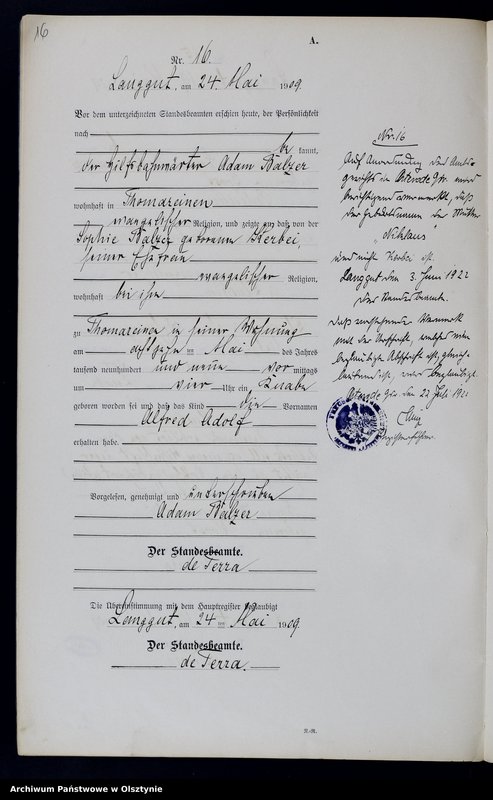 16
A.
Nr. 16.
Langgut, am 24. Mai 1909.
Vor dem unterzeichneten Standesbeamten erschien heute, der Persönlichkeit
nach
be kannt,
der Hilfsbahnwärter Adam Balzer
wohnhaft in Thomareinen
evangelischer Religion, und zeigte an, daß von der
Sophie Balzer geborenen Skerbei,
seiner Ehefrau
evangelischer Religion,
wohnhaft bei ihm
zu Thomareinen in seiner Wohnung
am achtzehn ten Mai des Jahres
tausend neunhundert und neun vor mittags
um vier Uhr ein Knabe
geboren worden sei und daß das Kind die Vornamen
Alfred Adolf
erhalten habe.
Vorgelesen, genehmigt und unterschrieben
Adam Balzer
Der Standesbeamte.
de Terra
Die Übereinstimmung mit dem Hauptregister beglaubigt
Langgut, am 24 ten Mai 1909.
Der Standesbeamte.
de Terra.
Nr. 16
Auf Anordnung des Amts-
gerichts in Osterode Opr. wird
berichtigend vermerkt, daß
der Geburtsname der Mutter
und nicht ist.
Langgut den 3. Juni 1922
Der Standesbeamte.
Daß vorstehender Vermerk
mit der Urschrift,
beglaubigte Abschrift ist, gleich-
lautend ist, wird beglaubigt.
Osterode Opr. den 22 Juli 192
A.-R.
Archiwum Państwowe w Olsztynie